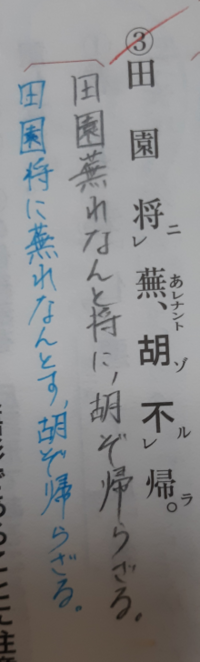 ③田園将ニレ蕪あレナント、胡ゾ不ルレ帰ラ。
田園蕪れなんと将に,胡ぞ帰らざる。
田園将に蕪れなんとす,胡ぞ帰らざる。